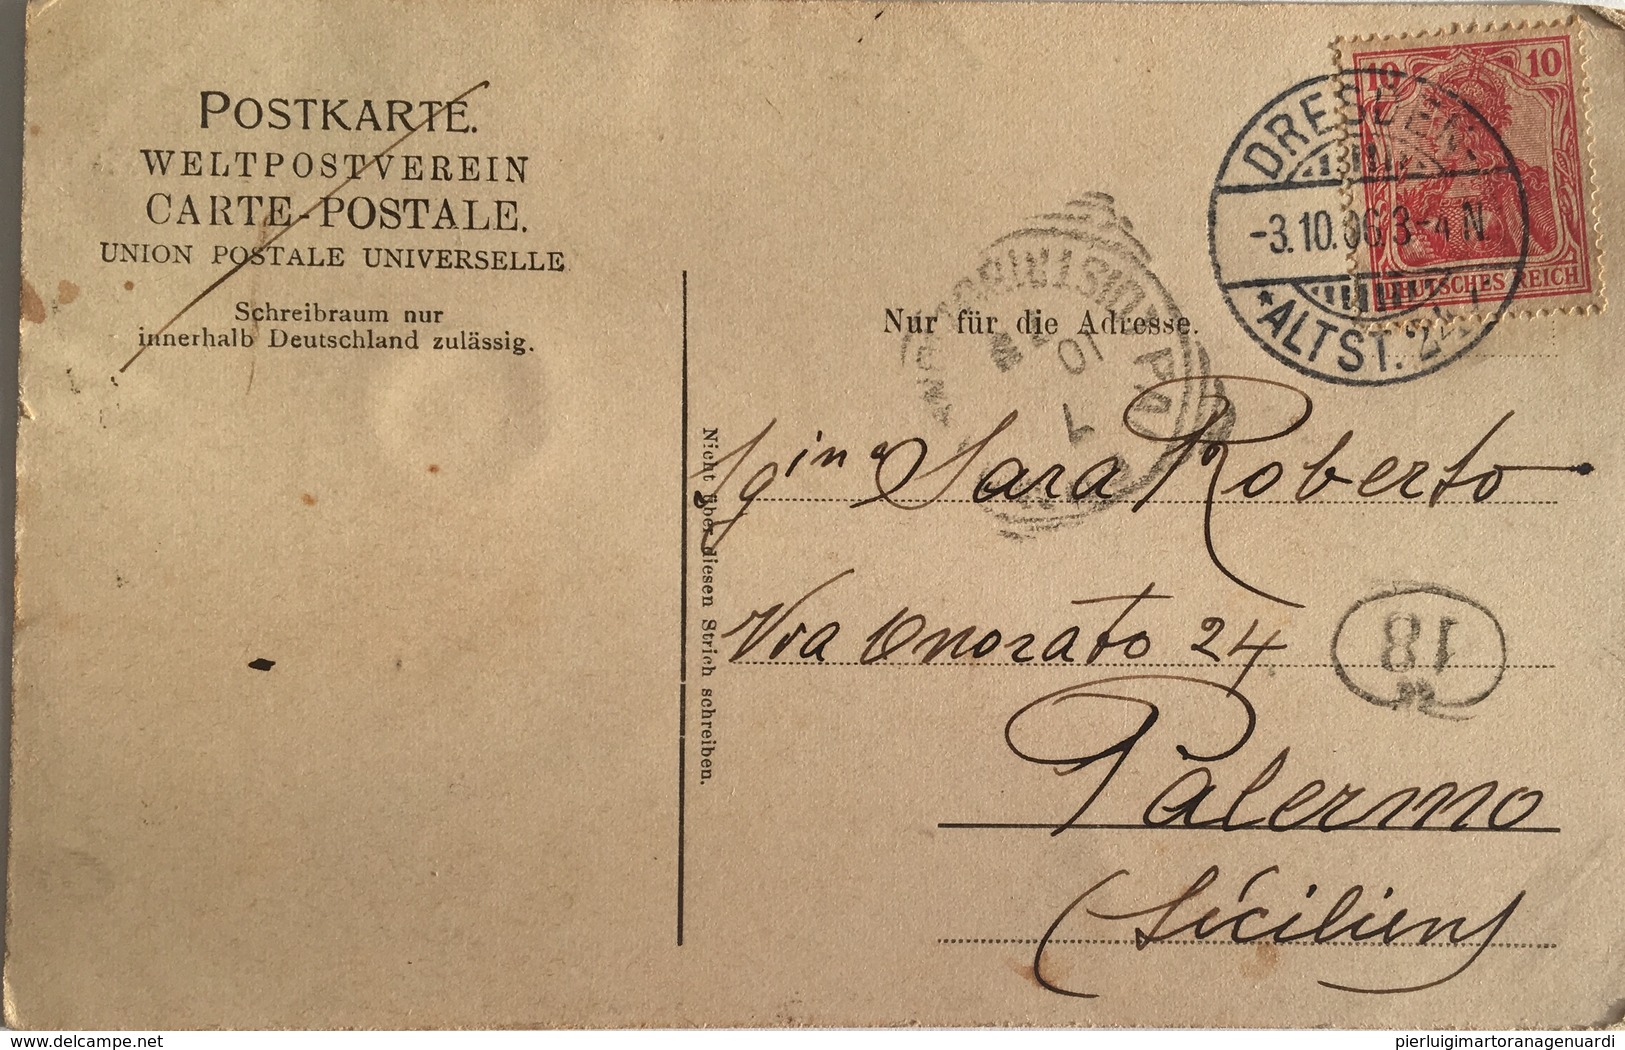 POSTKARTE.
WELTPOSTVEREIN
CARTE-POSTALE.
UNION POSTALE UNIVERSELLE
Schreibraum nur
innerhalb Deutschland zulässig.
10 10
DEUTSCHES REICH
DRESDEN
-3.10.06.3-4 N.
*ALTST. 24
Nur für die Adresse.
Nicht über diesen Strich schreiben.
Sgina Sara Roberto
Via Onorato 24
18
Palermo
(Sicilien)
delcampe.net
pierluigimartoranagenuardi